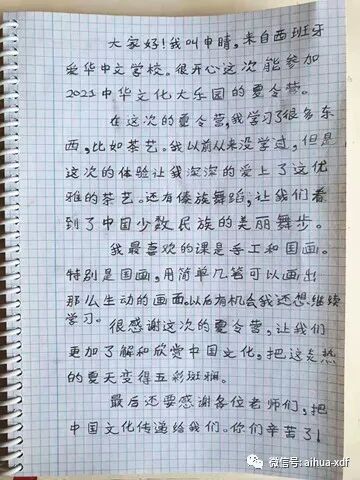 大家好!我叫申晴,来自西班牙
爱华中文学校。很开心这次能参加
2021中华文化大乐园的夏令营。
在这次的夏令营,我学习了很多东
西,比如茶艺。我以前从来没学过,但是
这次的体验让我深深的爱上了这优
雅的茶艺。还有傣族舞蹈,让我们看
到了中国少数民族的美丽舞步。
我最喜欢的课是手工和国画。
特别是国画,用简单几笔可以画出
那么生动的画面。以后有机会我还想继续
学习。
很感谢这次的夏令营,让我们
更加了解和欣赏中国文化,把这炎热
的夏天变得五彩斑斓。
最后还要感谢各位老师们,把
中国文化传递给我们。你们辛苦了!
微信号: aihua-xdf